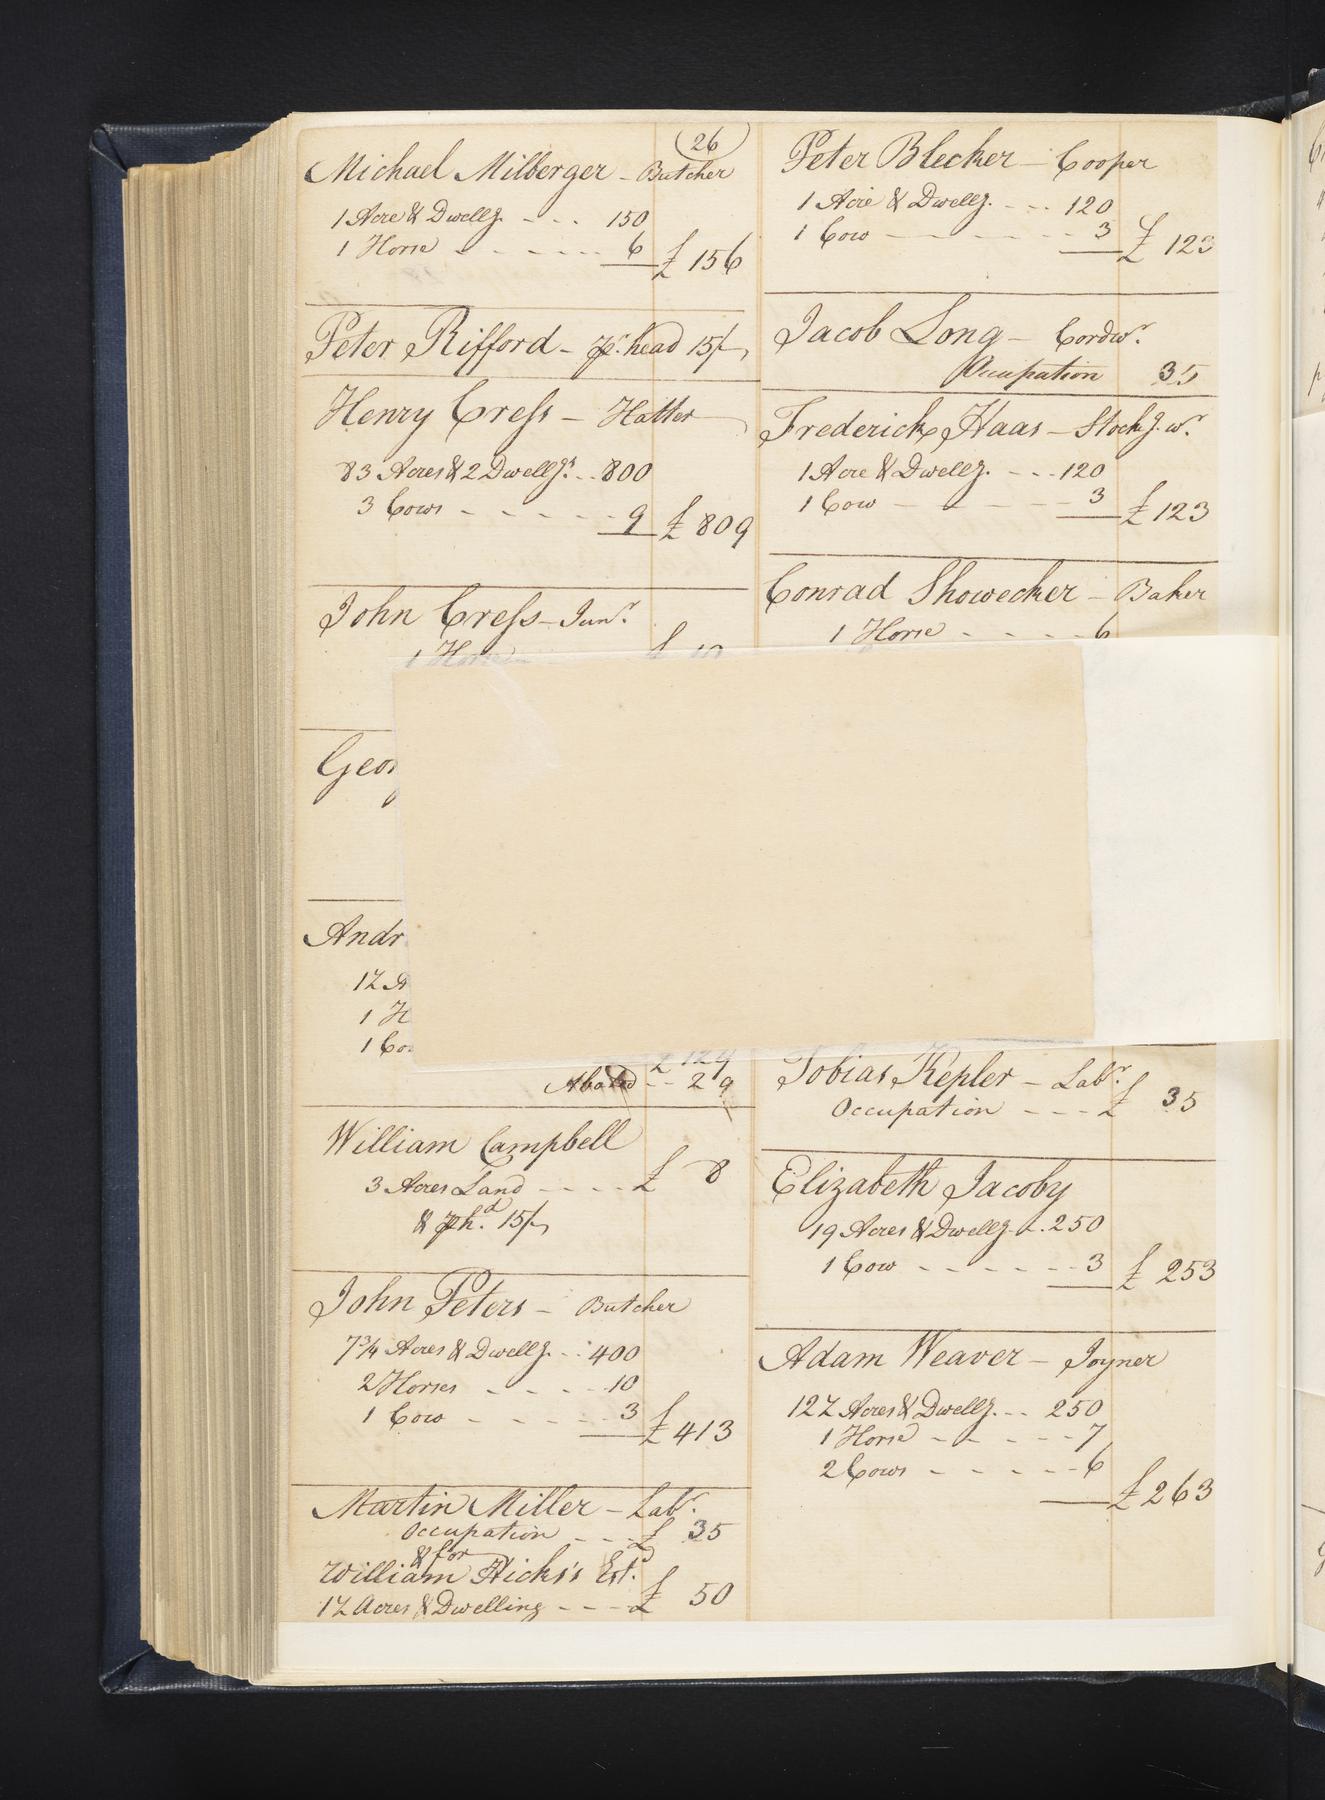 26
Michael Milberger - Butcher
1 Acre & Dwellg. - - . 150
1 Horse - - - - - - 6 £ 156
Peter Rifford - pr. head 15/-
Henry Cress - Hatter
83 Acres & 2 Dwellgs. - . 800
3 Cows - - - - - - 9 £ 809
John Cress - Junr.
1 Horse
Andr
1 H
1 Co
£ 124
Abated - - 29
William Campbell
3 Acres Land - - - - £ 8
& p hd. 15/-
John Peters - Butcher
7 3/4 Acres & Dwellg. - . 400
2 Horses - - - - 10
1 Cow - - - - - 3 £ 413
Martin Miller - Labr.
Occupation - - - £ 35
& for
William Hicks's Estd.
Acres & Dwelling - - - £ 50
Peter Blecker - Cooper
1 Acre & Dwellg. - - - 120
1 Cow - - - - - - 3 £ 123
Jacob Long - Cordwr.
Occupation 35
Frederick Haas - Stockg. wr.
1 Acre & Dwellg. - - - 120
1 Cow - - - - - 3 £ 123
Conrad Showecker - Baker
1 Horse - - - - 6
Tobias Kepler - Labr.
Occupation - - - £ 35
Elizabeth Jacoby
19 Acres & Dwellg - . 250
1 Cow - - - - - - 3 £ 253
Adam Weaver - Joyner
Acres & Dwellg. - - 250
1 Horse - - - - - 7
2 Cows - - - - - 6
£ 263